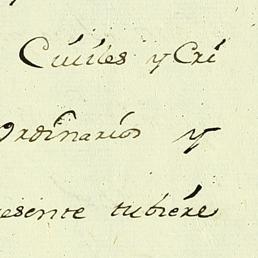 Ciuiles y Cri
Ordinarios y
resente tubiere